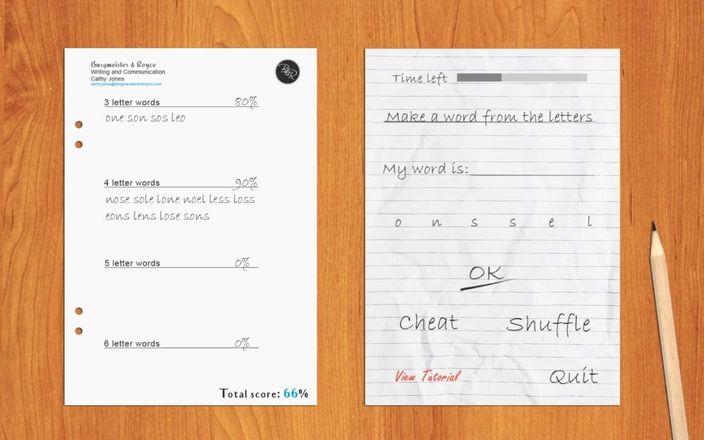 Burgmeister & Royce
Writing and Communication
Cathy Jones
cathy.jones@burgmeisterandroyce.com
B&R
3 letter words 80%
one son sos leo
4 letter words 90%
nose sole lone noel less loss
eons lens lose sons
5 letter words 0%
6 letter words 0%
Total score: 66%
Time left
Make a word from the letters
My word is:
o n s s e l
OK
Cheat Shuffle
View Tutorial Quit